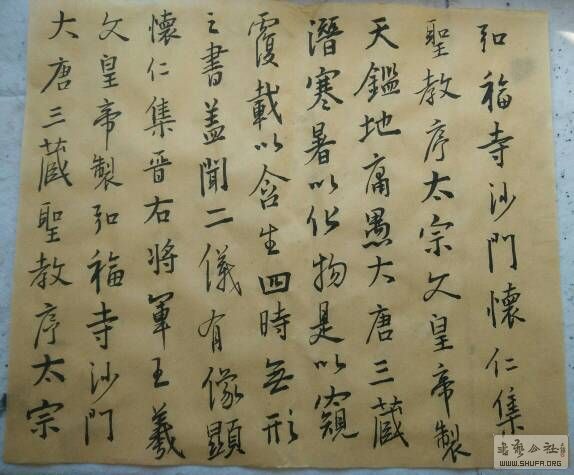 大唐三藏聖教序太宗
文皇帝製弘福寺沙門
懷仁集晉右將軍王羲
之書蓋聞二儀有像顯
覆載以含生四時無形
潛寒暑以化物是以窺
天鑑地庸愚大唐三藏
聖教序太宗文皇帝製
弘福寺沙門懷仁集
WWW.SHUFA.ORG